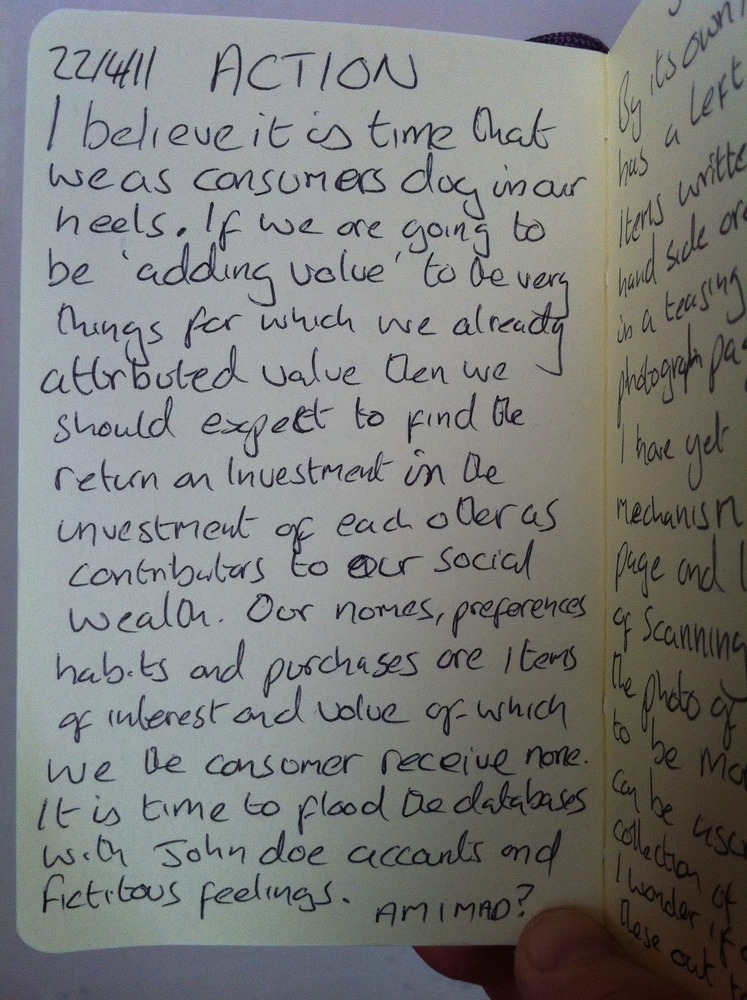 22/4/11 ACTION
I believe it is time that
we as consumers dog in our
heels. If we are going to
be 'adding value' to the very
things for which we already
attributed value then we
should expect to find the
return on Investment in the
investment of each other as
contributors to our social
wealth. Our names, preferences
habits and purchases are items
of interest and value of which
we the consumer receive none.
It is time to flood the databases
with John doe accounts and
fictitous feelings. AM I MAD?
By its own
has a left
Items writte
hand side
in a teasing
photograph
I have yet
mechanism
page and
of scanning
the photo of
to be
can be
collection of
I wonder if
these out